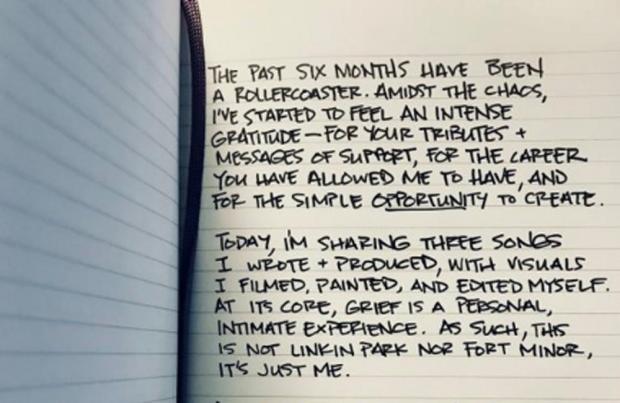 THE PAST SIX MONTHS HAVE BEEN
A ROLLERCOASTER. AMIDST THE CHAOS,
I'VE STARTED TO FEEL AN INTENSE
GRATITUDE—FOR YOUR TRIBUTES +
MESSAGES OF SUPPORT, FOR THE CAREER
YOU HAVE ALLOWED ME TO HAVE, AND
FOR THE SIMPLE OPPORTUNITY TO CREATE.
TODAY, I'M SHARING THREE SONGS
I WROTE + PRODUCED, WITH VISUALS
I FILMED, PAINTED, AND EDITED MYSELF.
AT ITS CORE, GRIEF IS A PERSONAL,
INTIMATE EXPERIENCE. AS SUCH, THIS
IS NOT LINKIN PARK NOR FORT MINOR,
IT'S JUST ME.